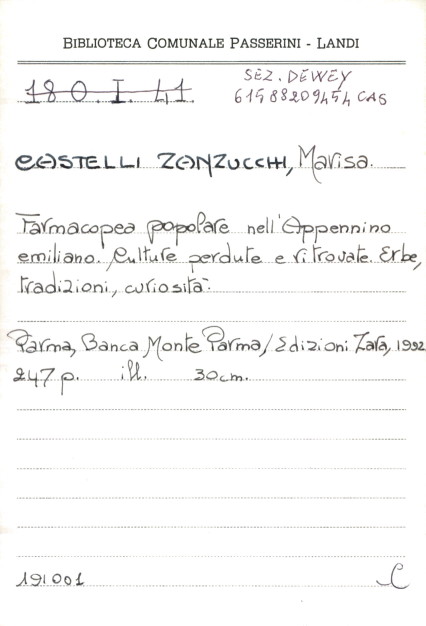 BIBLIOTECA COMUNALE PASSERINI - LANDI
180.I.41
SEZ. DEWEY
61588209454 CAS
CASTELLI ZANZUCCHI, Marisa.
Farmacopea popolare nell'Appennino
emiliano. Culture perdute e ritrovate. Erbe,
tradizioni, curiosità.
Parma, Banca Monte Parma/Edizioni Zara, 1992
247 p. ill. 30cm.
191001 C